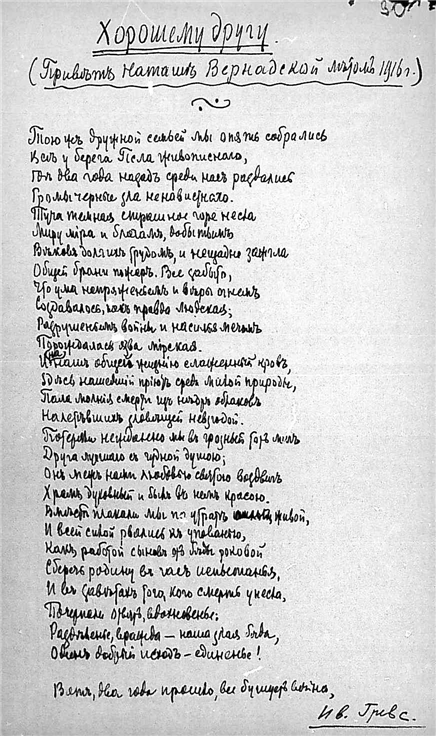 30
Хорошему другу.
(Привѣтъ Наташѣ Вернадской лѣтомъ 1916 г.)
Тою жъ дружной семьей мы опять собрались
Здѣсь у берега Псла живописнаго,
Гдѣ два года назадъ среди насъ раздались
Громы черные зла ненавистнаго.
Туча темная страшное горе несла
Миру міра и благамъ, добытымъ
Вѣковъ долгихъ трудомъ, и нещадно зажгла
Общей брани пожаръ. Все забыто,
Что ума напряженьемъ и вѣры огнемъ
Создавалось, какъ правда людская;
Разрушеньемъ войны и насилья мечемъ
Порождалась язва мірская.
И на нашъ общей жизнію слаженный кровъ,
Здѣсь нашедшій пріютъ средь милой природы,
Пала молнія смерти изъ нѣдръ облаковъ
Налетѣвшихъ зловѣщей невзгодой.
Потеряли нежданно мы въ грозный тотъ мигъ
Друга лучшаго съ чудной душою;
Онъ межъ нами любовью святого воздвигъ
Храмъ духовный и былъ въ немъ красою.
Вмѣстѣ плакали мы по утратѣ живой,
И всей силой рвались къ упованью,
Какъ работой сыновъ отъ бѣды роковой
Сберечь родину въ часъ испытанья,
И въ завѣтахъ того, кого смерть унесла,
Почерпали отвѣтъ, вдохновенье;
Раздѣленье, вражда – наша злая бѣда,
Одинъ добрый исходъ – единенье!
Вотъ, два года прошло, все бушуетъ война,
Ив. Гревс.